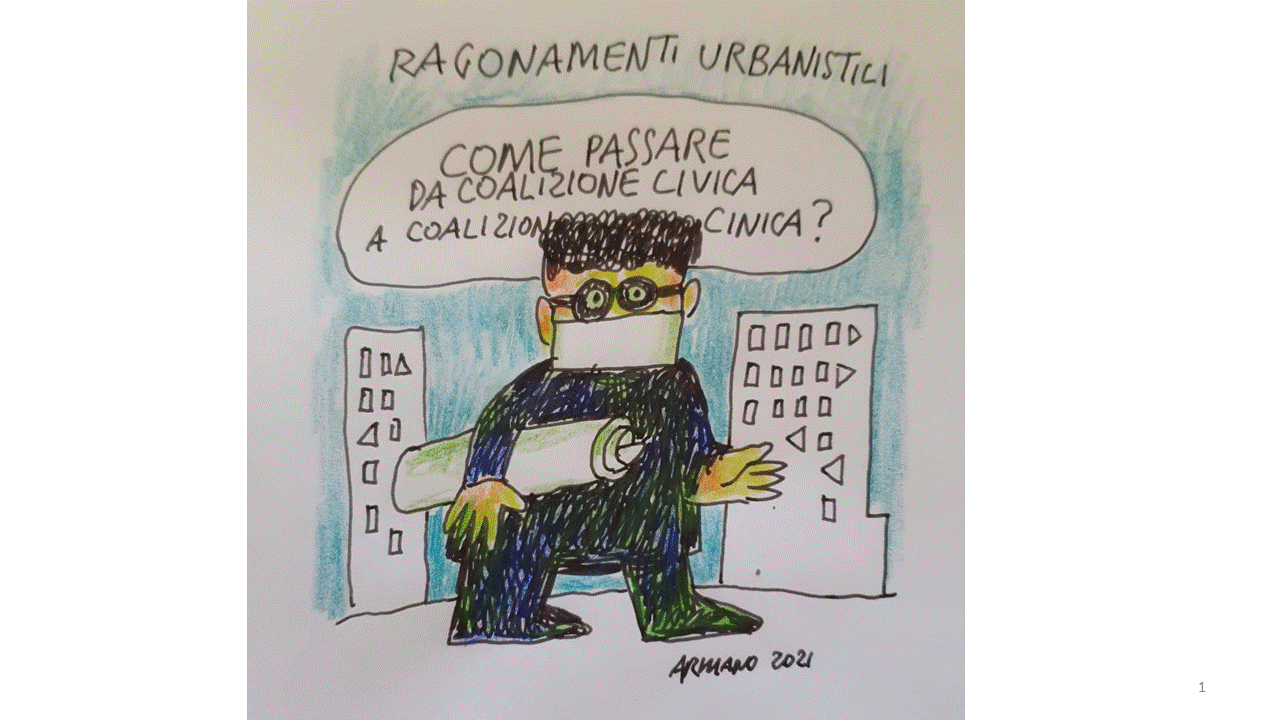 RAGONAMENTI URBANISTICI
COME PASSARE
DA COALIZIONE CIVICA
A COALIZION CINICA?
ARMANO 2021
1